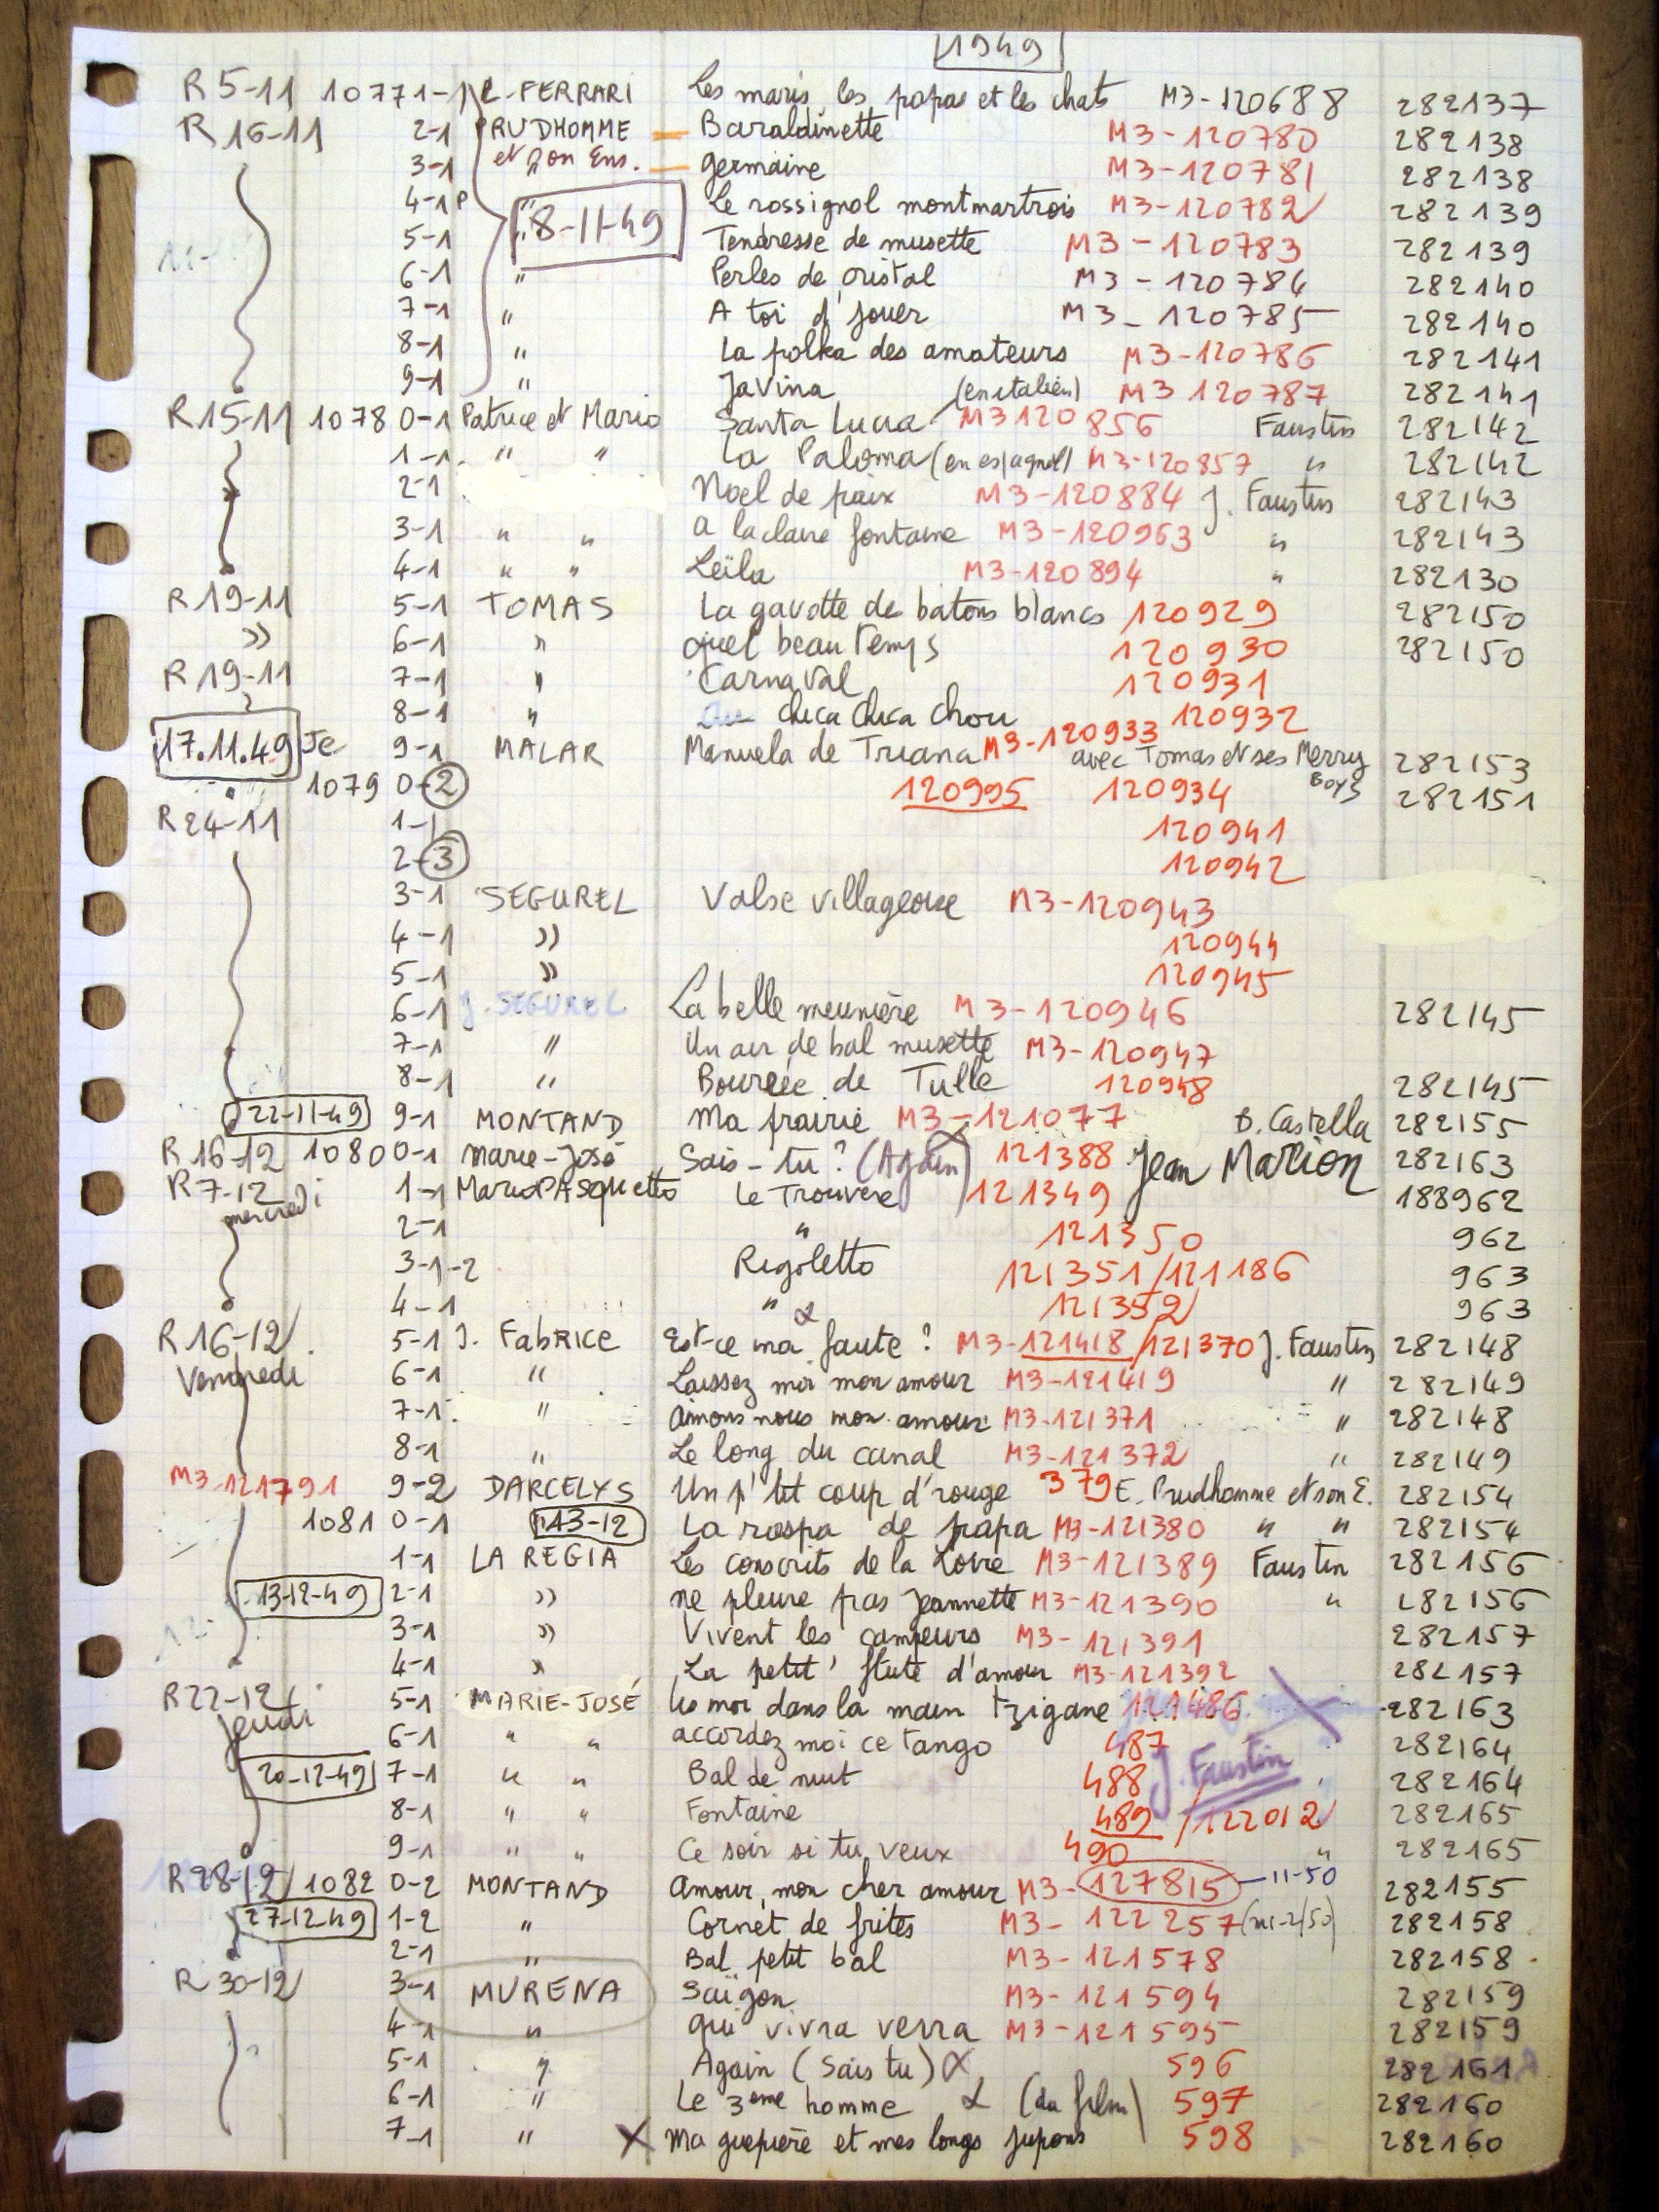 1949
R 5-11 10771-1 L. FERRARI Les maris les papas et les chats M3-120688 282137
R 16-11 2-1 PRUDHOMME Baraldinette M3-120780 282138
3-1 et son Ens. germaine M3-120781 282138
4-1 P " Le rossignol montmartrois M3-120782 282139
8-11-49
5-1 " Tendresse de musette M3-120783 282139
6-1 " Perles de cristal M3-120784 282140
7-1 " A toi d'jouer M3-120785 282140
8-1 " La polka des amateurs M3-120786 282141
9-1 " JaVina M3 120787 282141
R 15-11 10780-1 Patrice et Mario Santa Lucia (en italien) M3120856 Faustin 282142
1-1 " " La Paloma (en espagnol) M3-120857 " 282142
2-1 Noel de paix M3-120884 J. Faustin 282143
3-1 " " a la claire fontaine M3-120963 " 282143
4-1 " " Leïla M3-120894 " 282130
R 19-11 5-1 TOMAS La gavotte de batons blancs 120929 282150
» 6-1 » quel beau Temps 120930 282150
R 19-11 7-1 » Carnaval 120931
8-1 " chica chica chou 120932
17.11.49 Je 9-1 MALAR Manuela de Triana M3-120933 avec Tomas et ses Merry Boys 282153
1079 0-2 120995 120934 282151
R 24-11 1-1 120941
2-3 120942
3-1 SEGUREL Valse villageoise M3-120943
4-1 » 120944
5-1 » 120945
6-1 J. SEGUREL La belle meunière M3-120946 282145
7-1 " Un air de bal musette M3-120947
8-1 " Bourrée de Tulle 120948 282145
22-11-49 9-1 MONTAND Ma prairie M3-121077 B. Castella 282155
R 16-12 10800-1 Marie-José Sais-tu? (Again) 121388 Jean Marion 282163
R 7-12 1-1 Mario PASquetto Le Trouvere 121349 188962
mercredi 2-1 " 121350 962
3-1-2 Rigoletto 121351/121186 963
4-1 " 121352 963
R 16-12 5-1 J. Fabrice Est-ce ma faute? M3-121418/121370 J. Faustin 282148
Vendredi 6-1 " Laissez moi mon amour M3-121419 " 282149
7-1 " aimons nous mon amour M3-121371 " 282148
8-1 " Le long du canal M3-121372 " 282149
M3-121791 9-2 DARCELYS Un p'tit coup d'rouge 379 E. Prudhomme et son E. 282154
1081 0-1 13-12 La raspa de papa M3-121380 " " 282154
1-1 LA REGIA Les conscrits de la Loire M3-121389 Faustin 282156
13-12-49 2-1 » ne pleure pas Jeannette M3-121390 " 282156
3-1 » Vivent les campeurs M3-121391 282157
4-1 » La petit' flute d'amour M3-121392 282157
R 22-12 5-1 MARIE-JOSÉ lis moi dans la main tzigane 121486 282163
jeudi 6-1 " " accordez moi ce tango 487 282164
20-12-49 7-1 " " Bal de nuit 488 J. Faustin 282164
8-1 " " Fontaine 489 /122012 282165
9-1 " " Ce soir si tu veux 490 " 282165
R 28-12 1082 0-2 MONTAND Amour, mon cher amour M3-127815 11-50 282155
27-12-49 1-2 " Cornet de frites M3-122257 282158
2-1 " Bal petit bal M3-121578 282158
R 30-12 3-1 MURENA Saïgon M3-121594 282159
4-1 " qui vivra verra M3-121595 282159
5-1 " Again (Sais tu) 596 282161
6-1 " Le 3eme homme (du film) 597 282160
7-1 " X Ma guepière et mes longs jupons 598 282160